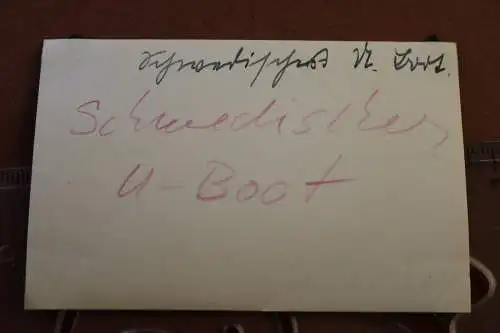 Schwedisches U. Boot.
Schwedisches
U-Boot